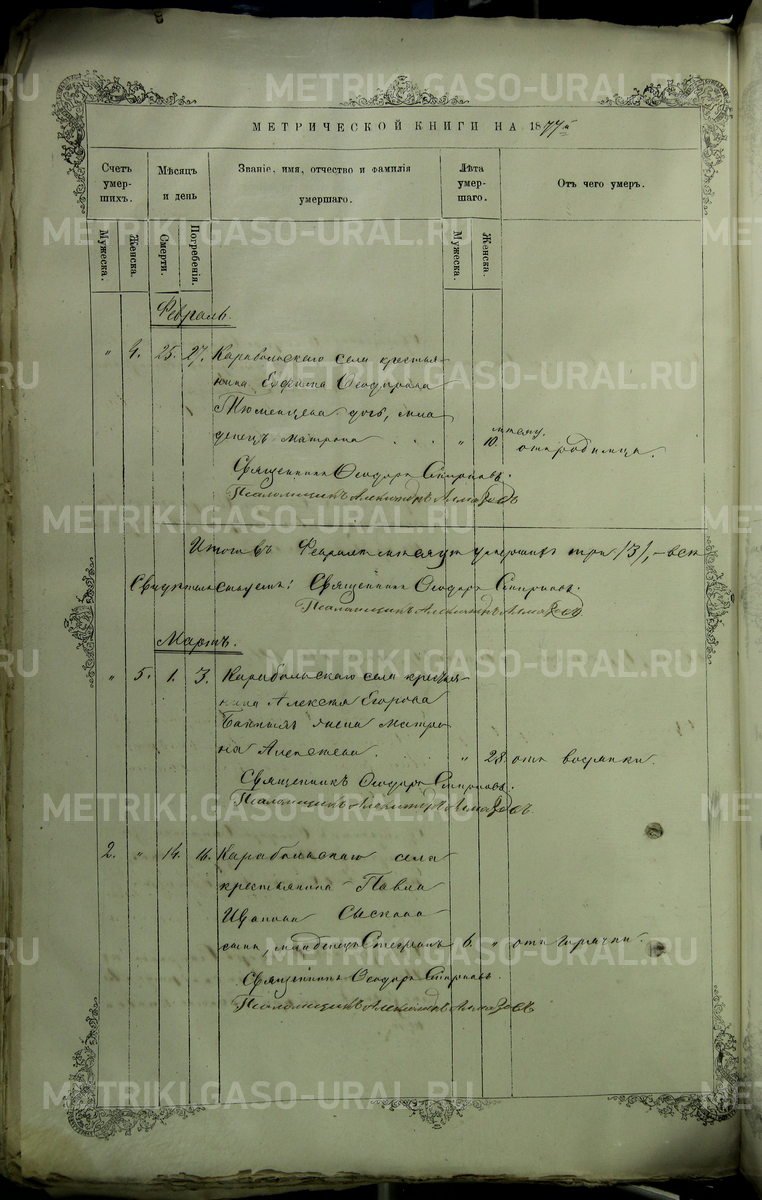 METRIKI.GASO-URAL.RU
МЕТРИЧЕСКОЙ КНИГИ НА 1877й
Счетъ умершихъ.
Мѣсяцъ и день
Званіе, имя, отчество и фамилія умершаго.
Лѣта умершаго.
Отъ чего умеръ.
Мужеска.
Женска.
Смерти.
Погребенія.
Мужеска.
Женска.
Февраль.
" 4. 25. 27. Карабольскаго села крестья-
нина Ефима Ѳеодорова
Тюменцева дочь, мла-
денецъ Матрона . . . " 10. мѣсяц. отъ родимца.
Священникъ Ѳеодоръ Смирновъ.
Псаломщикъ Александръ Алмазовъ
Итого въ Февралѣ мѣсяцѣ умершихъ три /3/,
Свидѣтельствуемъ: Священникъ Ѳеодоръ Смирновъ.
Псаломщикъ Александръ Алмазовъ
Мартъ.
" 5. 1. 3. Карабольскаго села крестья-
нина Алексѣя Егорова
жена Матро-
на Алексѣева . . . " 28. отъ
Священникъ Ѳеодоръ Смирновъ.
Псаломщикъ Александръ Алмазовъ
2. " 14. 16. Карабольскаго села
крестьянина Павла
Иванова Сыскова
сынъ, младенецъ Стефанъ 6. " отъ горячки.
Священникъ Ѳеодоръ Смирновъ
Псаломщикъ Александръ Алмазовъ